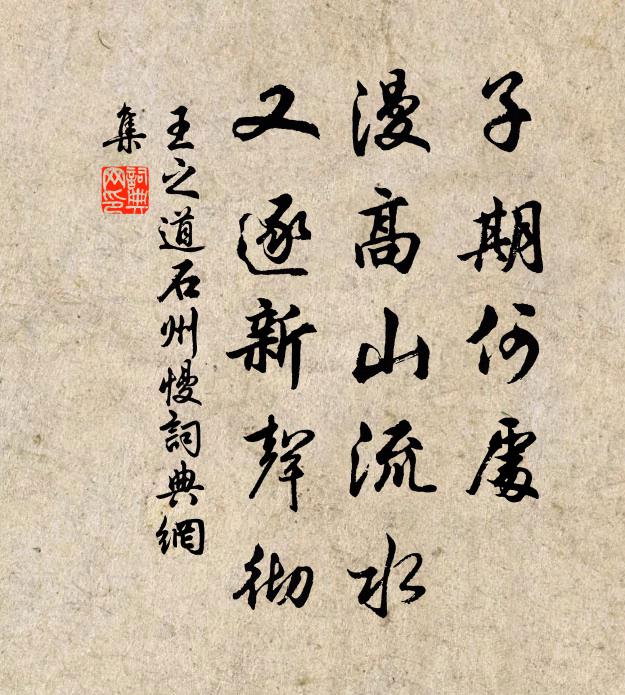 子期何處
漫高山流水
又逐新聲彻
王之道石州慢詞典網
集
詞典
网印